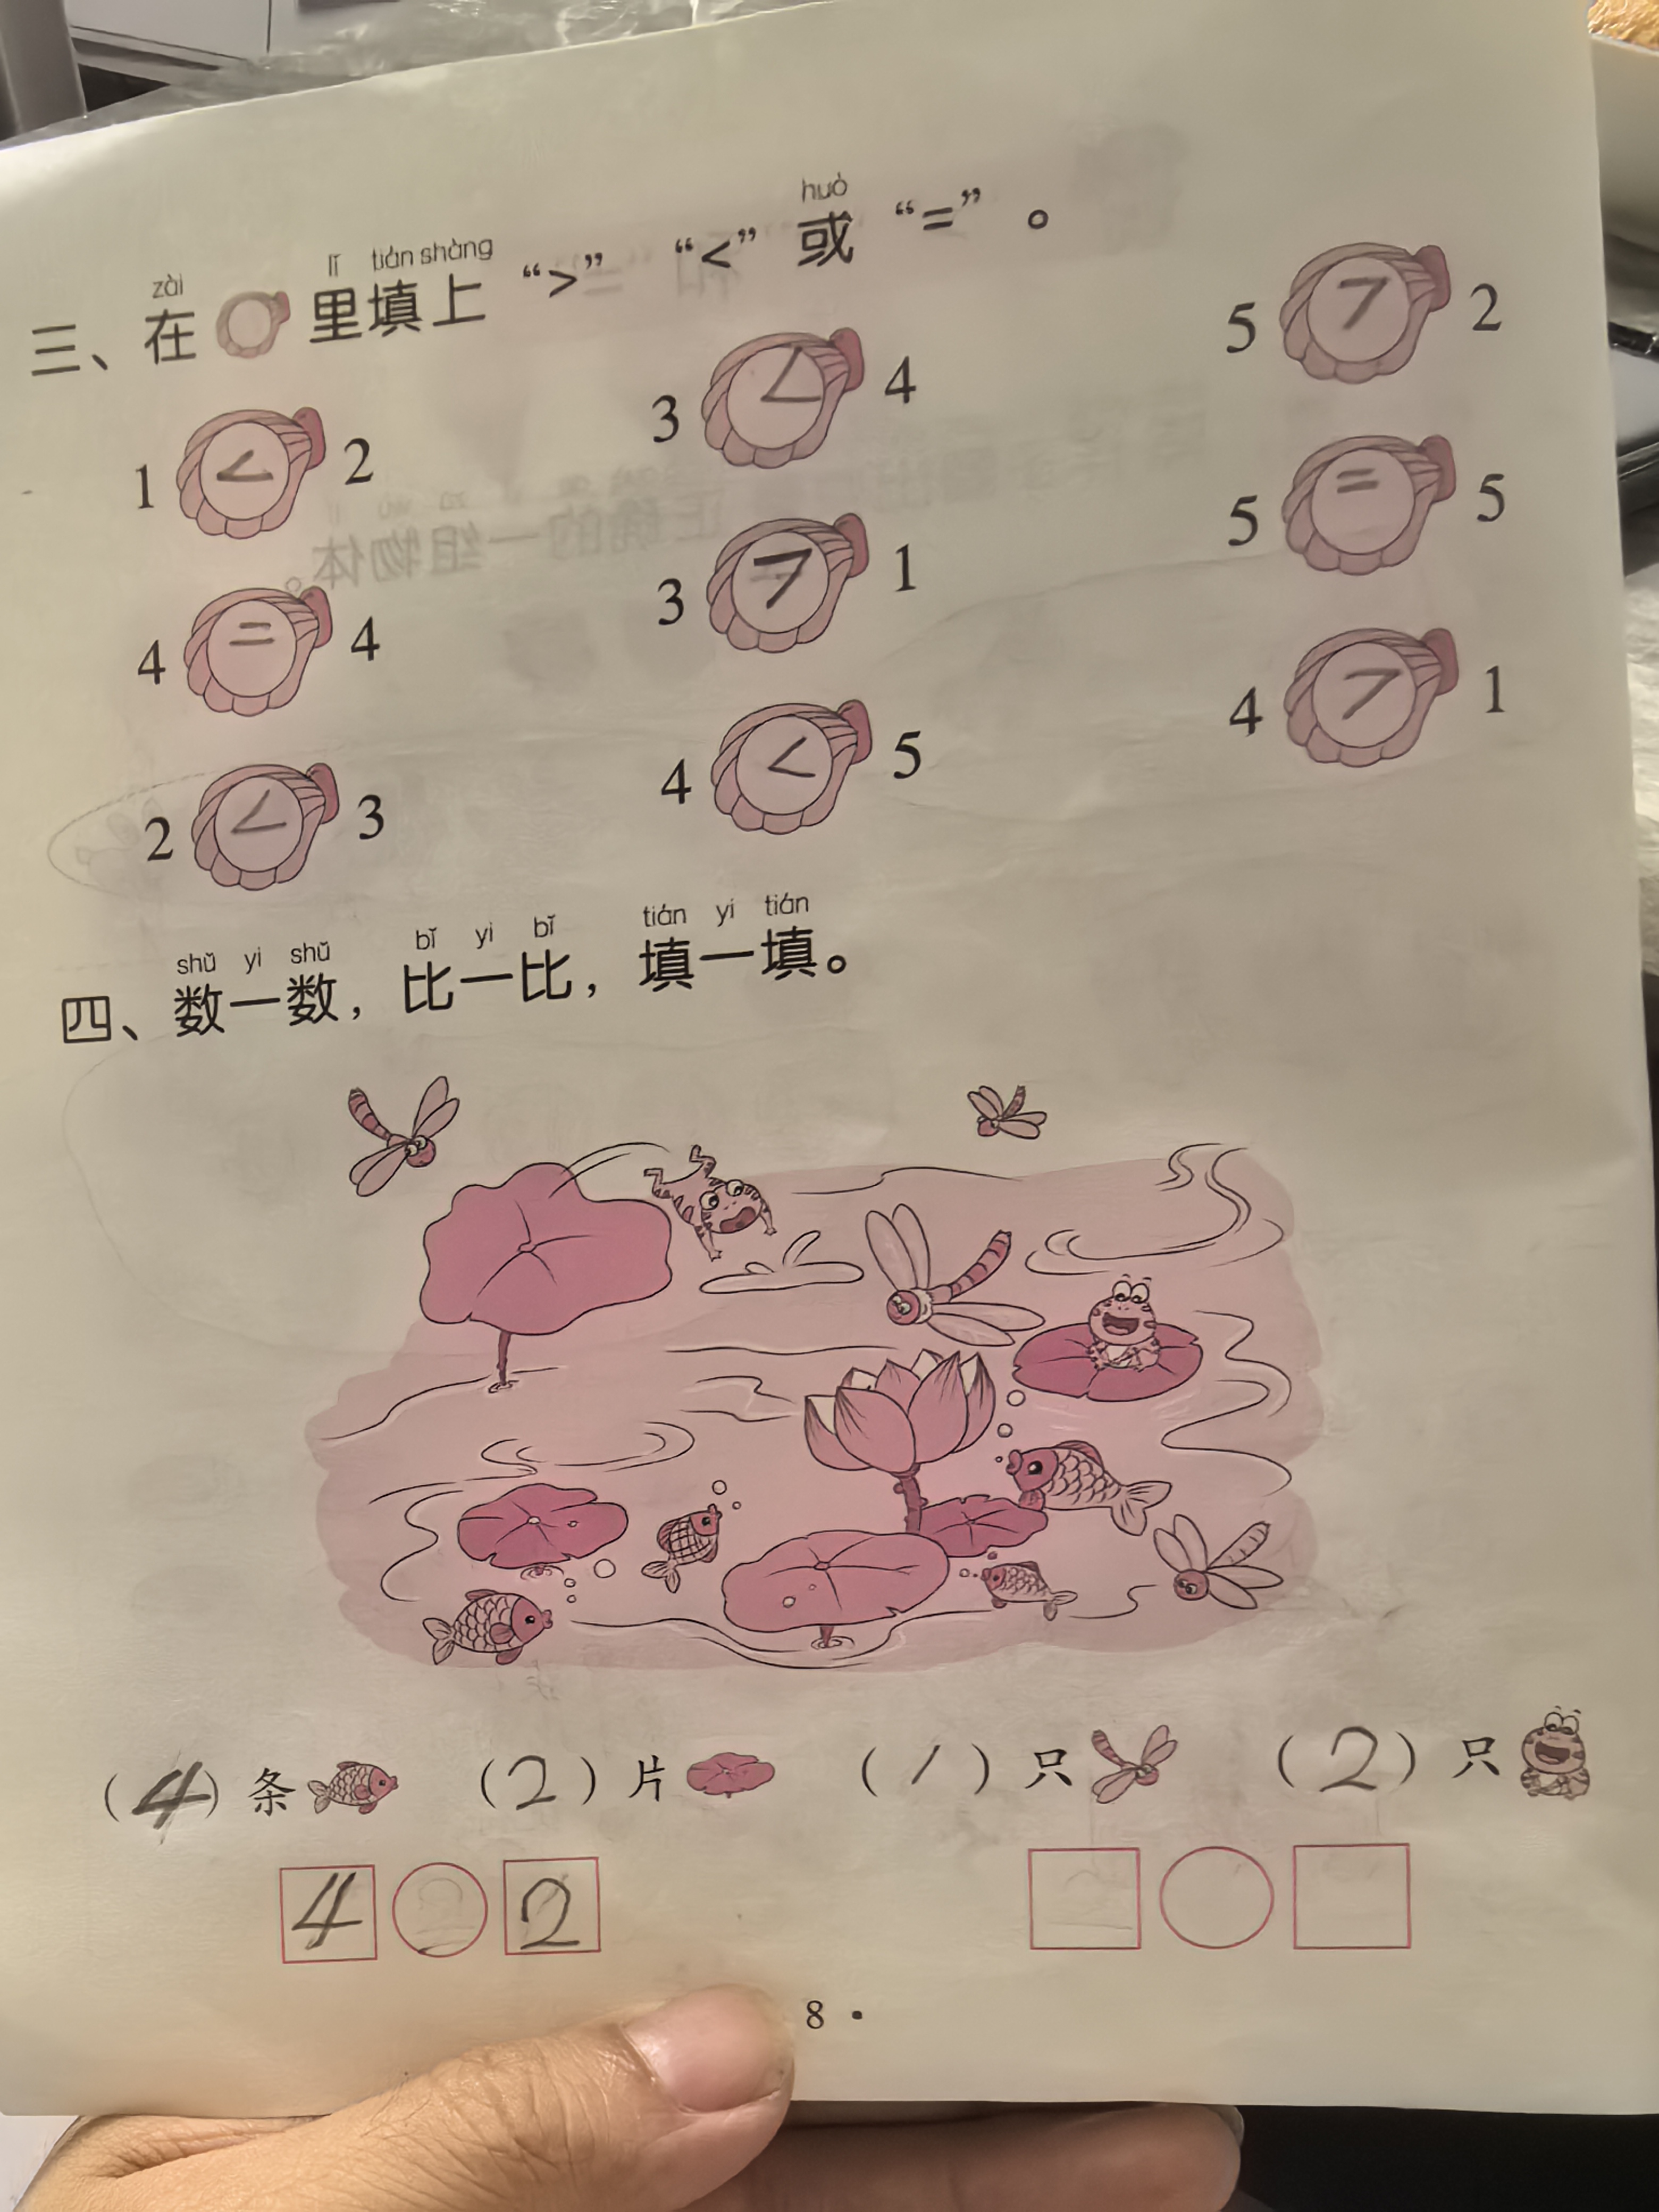 zài lǐ tián shàng huò
三、在 里填上 “>” “<” 或 “=” 。
1 < 2 3 < 4 5 > 2
4 = 4 3 > 1 5 = 5
2 < 3 4 < 5 4 > 1
shǔ yi shǔ bǐ yi bǐ tián yi tián
四、数一数，比一比，填一填。
（4）条 （2）片 （1）只 （2）只
4 2
8 ·